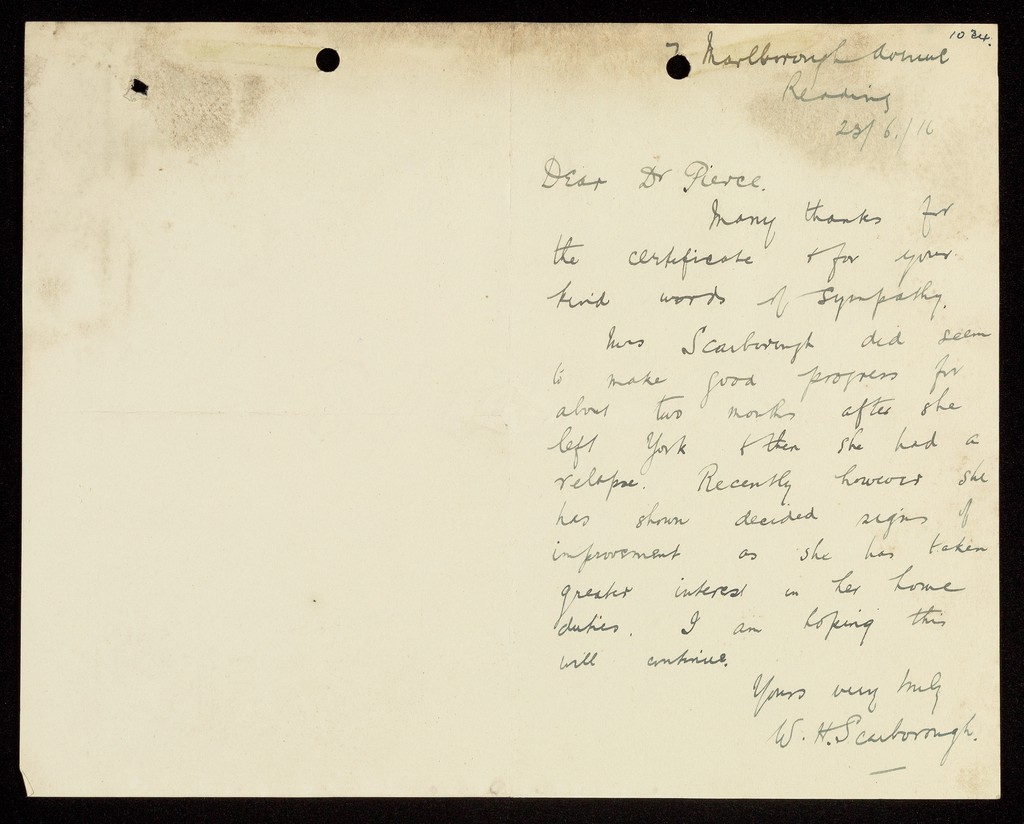 1034.
7 Marlborough Avenue
Reading
23/6/16
Dear Dr Pierce.
Many thanks for
the certificate & for your
kind words of sympathy.
Mrs Scarborough did seem
to make good progress for
about two months after she
left York & then she had a
relapse. Recently however she
has shown decided signs of
improvement as she has taken
greater interest in her home
duties. I am hoping this
will continue.
Yours very truly
W. H. Scarborough.